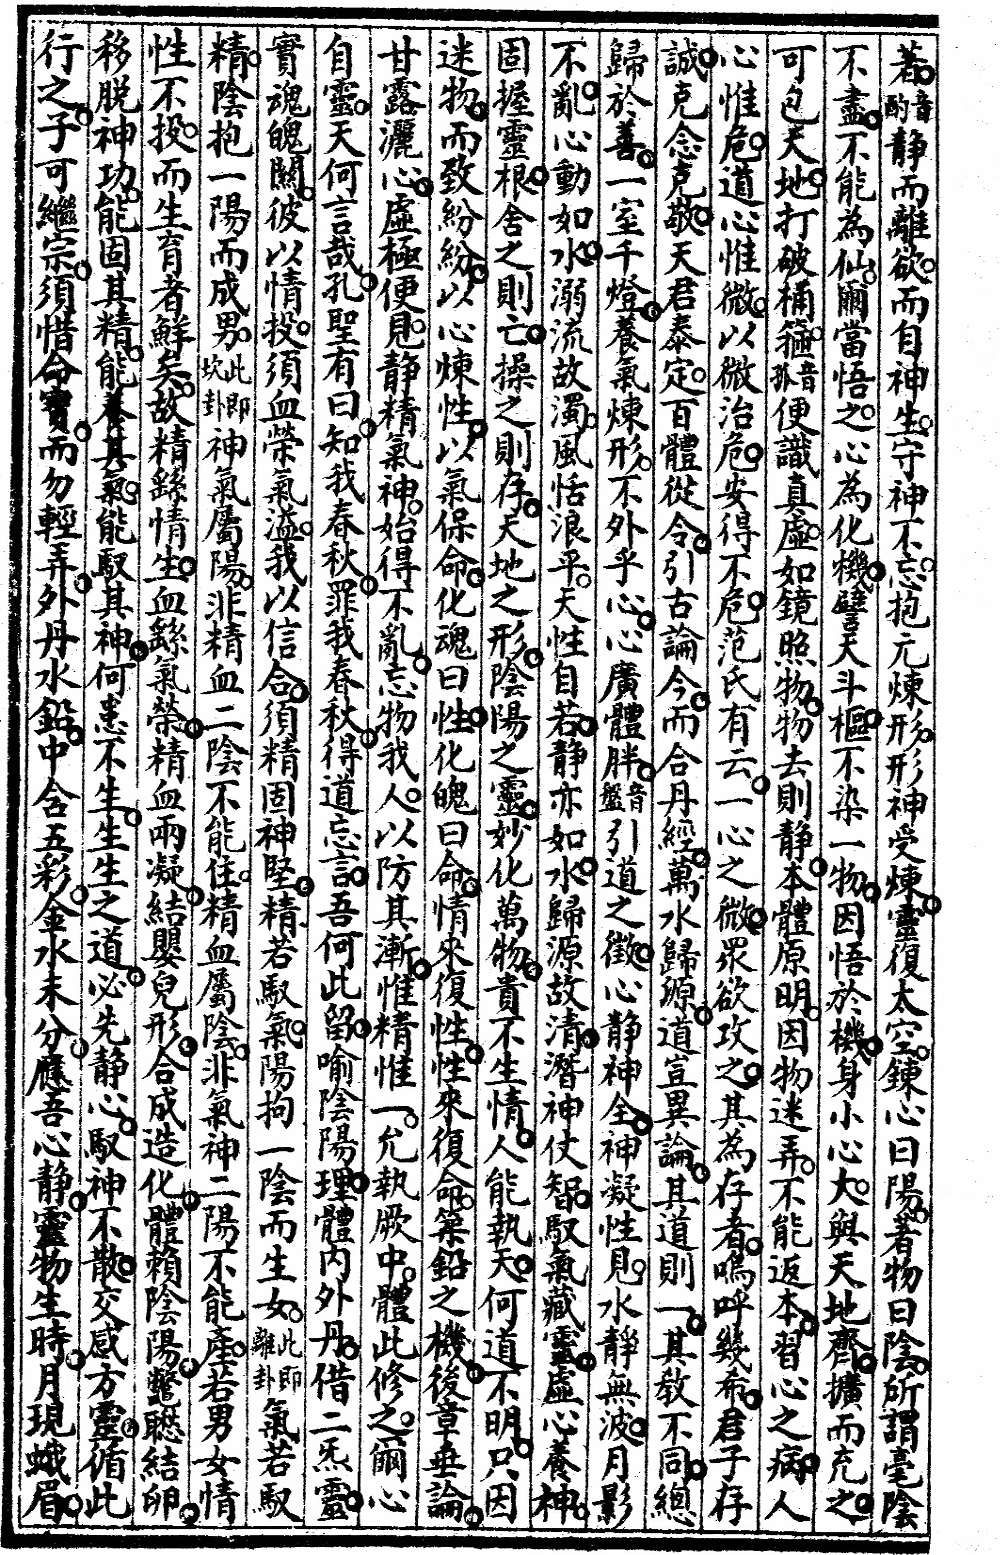 著音酌静而離欲而自神生守神不忘抱元煉形形神受煉靈復太空鍊心曰陽著物曰陰所謂毫陰
不盡不能為仙爾當悟之心為化機譬天斗樞不染一物因悟於機身小心大與天地齊擴而充之
可包天地打破桶箍音孤便識真虛如鏡照物物去則静本體原明因物迷弄不能返本習心之病人
心惟危道心惟微以微治危安得不危范氏有云一心之微眾欲攻之其為存者嗚呼幾希君子存
誠克念克敬天君泰定百體從令引古論今而合丹經萬水歸源道豈異論其道則一其教不同緫
歸於善一室千燈養氣煉形不外乎心心廣體胖音盤引道之徵心静神全神凝性見水静無波月影
不亂心動如水溺流故濁風恬浪平天性自若静亦如水歸源故清潛神仗智馭氣藏靈虛心養神
固握靈根舍之則亡操之則存天地之形陰陽之靈妙化萬物貴不生情人能執天何道不明只因
迷物而致紛紛以心煉性以氣保命化魂曰性化魄曰命情來復性性來復命築鉛之機後章垂論
甘露灑心虛極便見静精氣神始得不亂忘物我人以防其漸惟精惟一允執厥中體此修之爾心
自靈天何言哉孔聖有曰知我春秋罪我春秋得道忘言吾何此留喻陰陽理體内外丹借二炁靈
實魂魄關彼以情投須血榮氣溢我以信合須精固神堅精若馭氣陽拘一陰而生女此即離卦氣若馭
精陰抱一陽而成男此即坎卦神氣屬陽非精血二陰不能住精血屬陰非氣神二陽不能產若男女情
性不投而生育者鮮矣故精繇情生血繇氣榮精血兩凝結嬰兒形合成造化體賴陰陽鼈聽結卵
移脱神功能固其精能養其氣能馭其神何患不生生生之道必先静心馭神不散交感方靈循此
行之子可繼宗須惜命寶而勿輕弄外丹水鉛中含五彩金水未分應吾心静靈物生時月現蛾眉